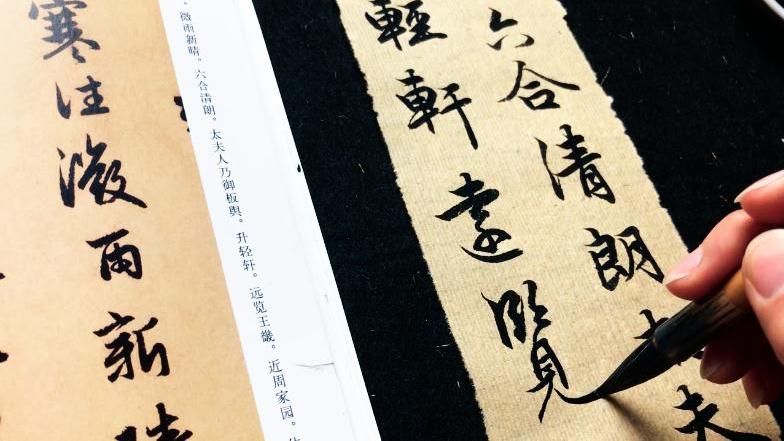 寒往微雨新晴
微雨新晴。六合清朗。太夫人乃御板舆。升轻轩。远览王畿。近周家园。
六合清朗太夫
輕軒遠覽